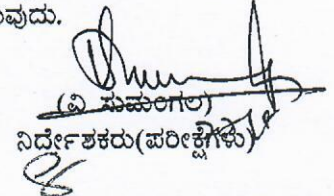 ವುದು.
(ವಿ ಸುಮಂಗಲ)
ನಿರ್ದೇಶಕರು(ಪರೀಕ್ಷೆಗಳು)